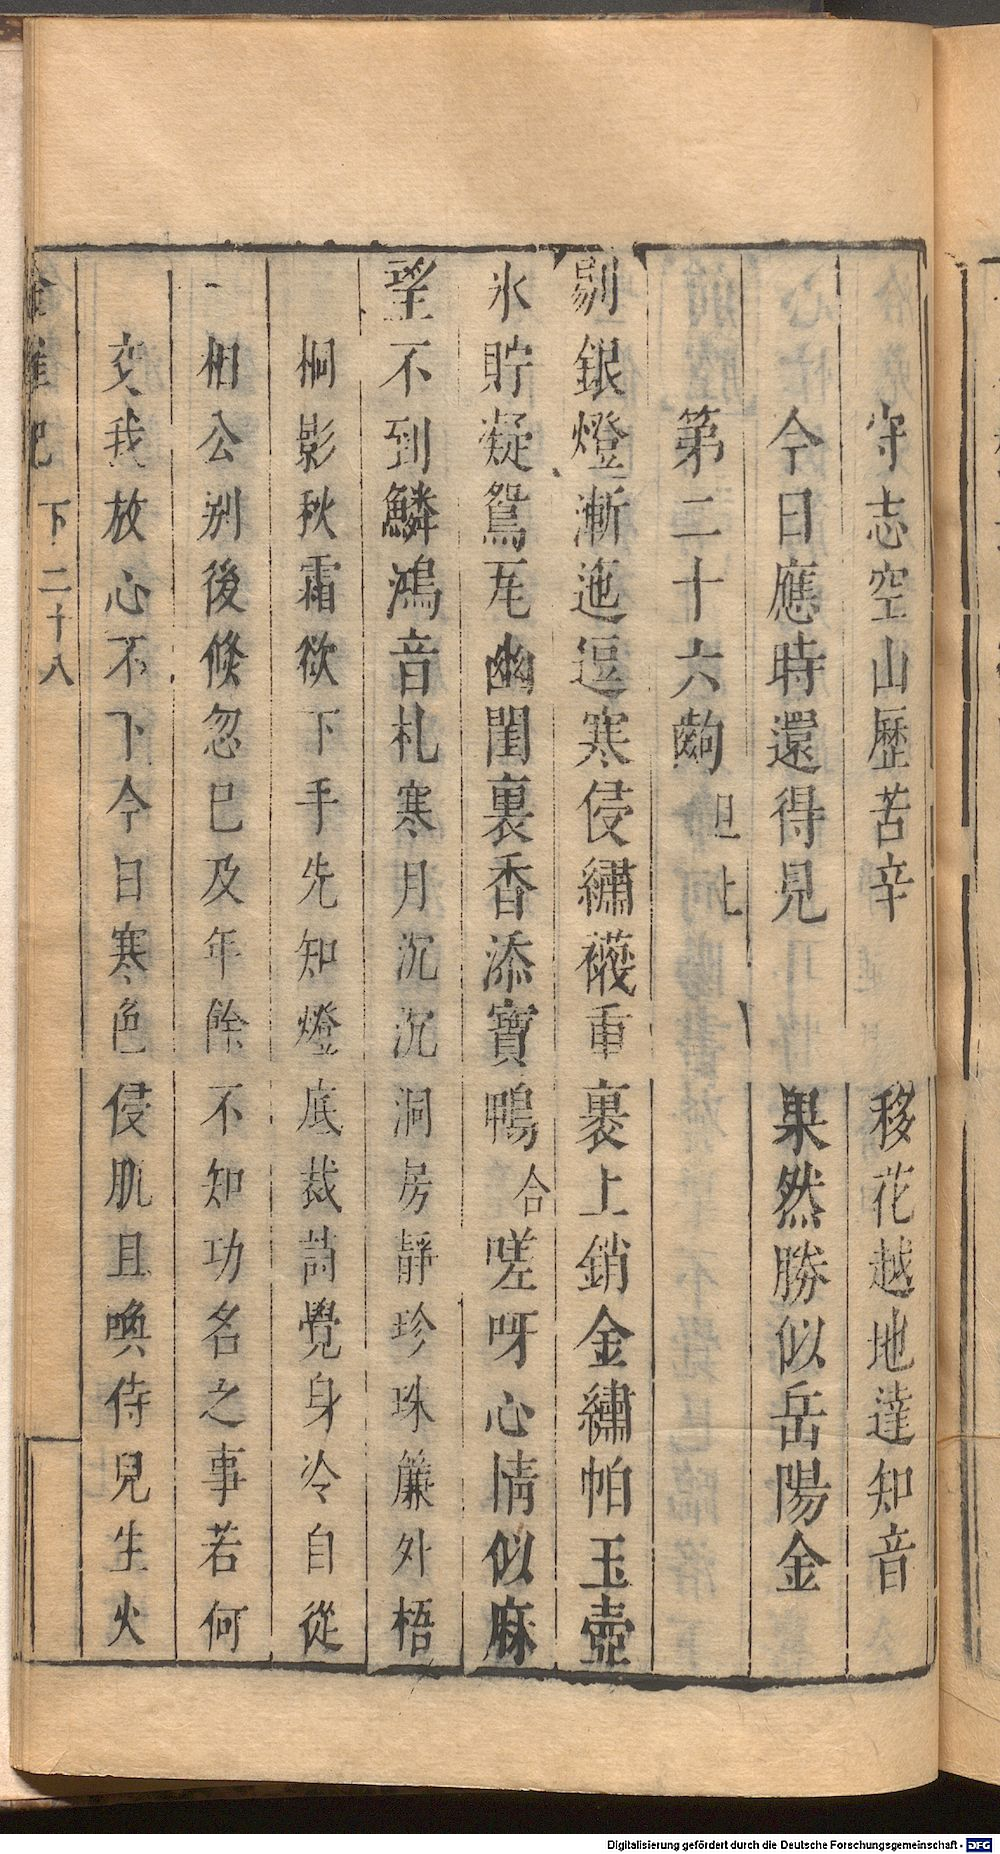 守志空山歷苦辛　移花越地達知音
今日應時還得見　果然勝似岳陽金
第二十六齣 旦上
剔銀燈漸迤逗寒侵繡襪重裹上銷金繡帕玉壺
氷貯凝鴛瓦幽閨裏香添寶鴨 合 嗟呀心情似麻
望不到鱗鴻音札寒月沉沉洞房靜珍珠簾外梧
桐影秋霜欲下手先知燈底裁詩覺身冷自從
相公別後倐忽巳及年餘不知功名之事若何
交我放心不下今日寒色侵肌且喚侍兒生火
記 下 二十八
Digitalisierung gefördert durch die Deutsche Forschungsgemeinschaft - DFG